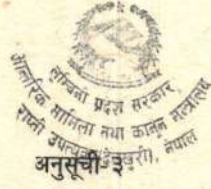 लुम्बिनी प्रदेश सरकार
आन्तरिक मामिला तथा कानून मन्त्रालय
राप्ती उपत्यका (देउखुरी), नेपाल
अनुसूची-३